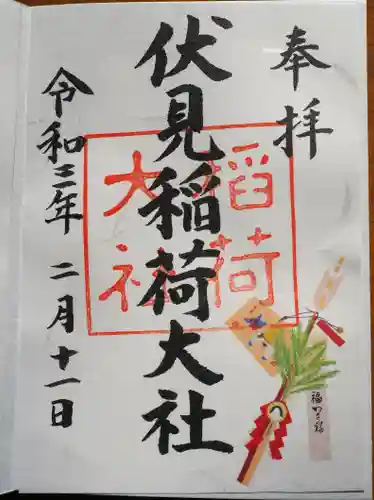 奉拝
伏見稲荷大社
稲荷
大社
令和三年 二月十一日